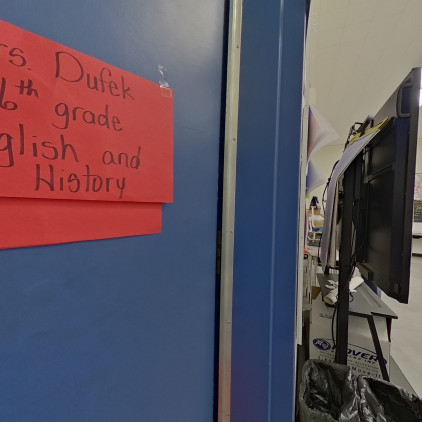 rs. Dufek
6th grade
glish and
History
OVERS